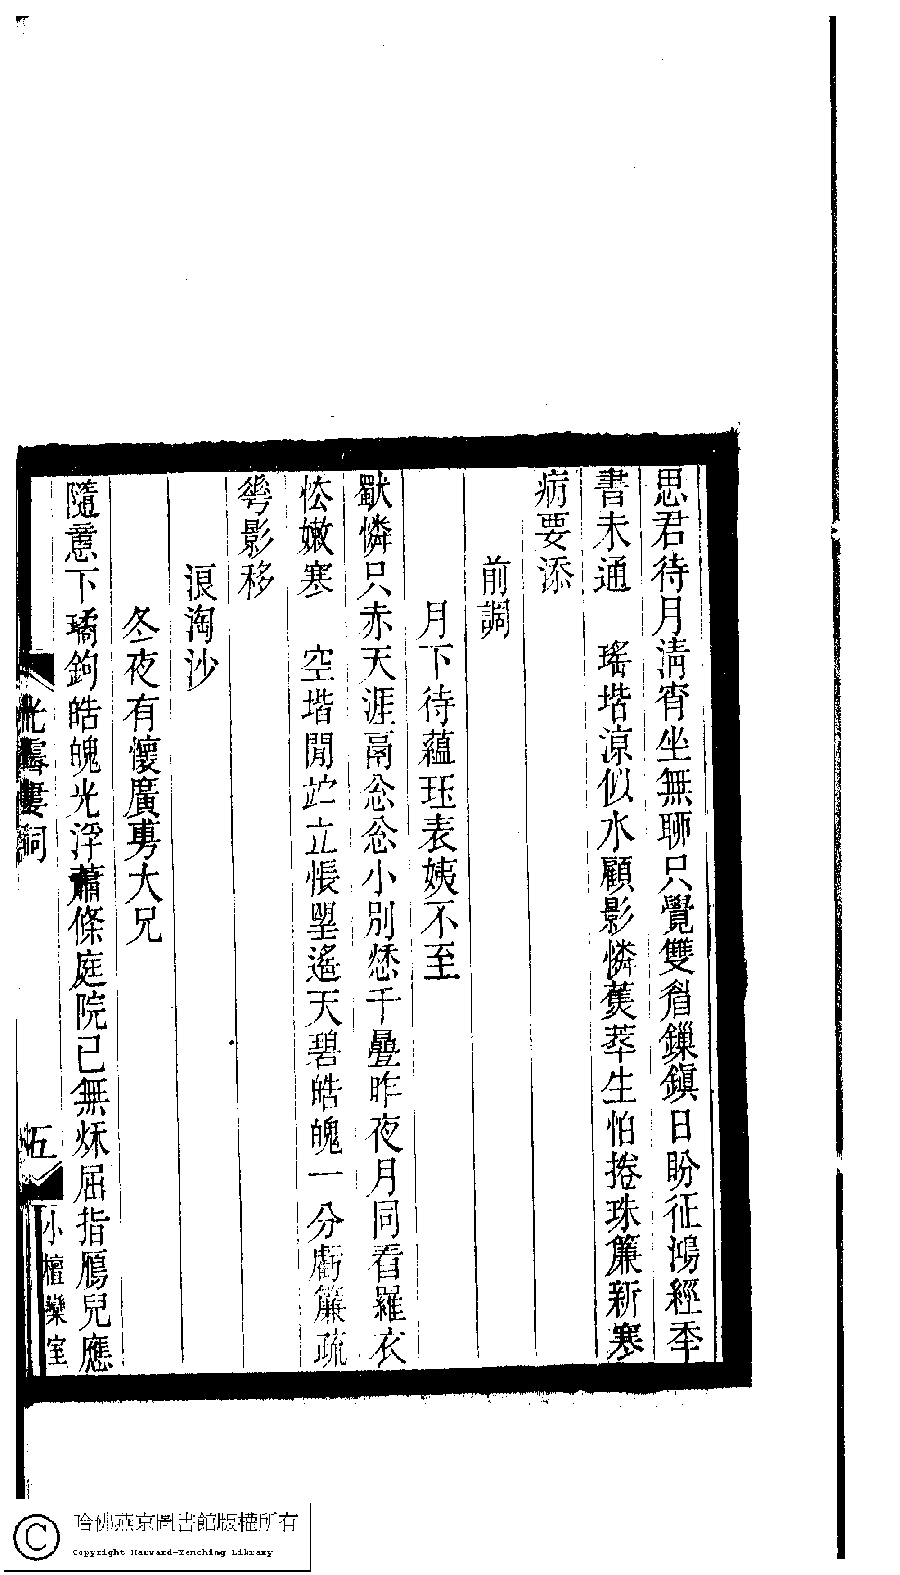 思君待月清宵坐無聊只覺雙眉鏁鎮日盼征鴻經季
書未通　瑤堦涼似水顧影憐蕉萃生怕捲珠簾新寒
病要添
前調
月下待蘊珏表姨不至
歡憐只赤天涯鬲忩忩小別愁千疊昨夜月同看羅衣
忪嫩寒　空堦閒竚立悵朢遙天碧皓魄一分虧簾疏
蕚影移
浪淘沙
冬夜有懷廣専大兄
隨意下璚鉤皓魄光浮蕭條庭院已無秌屈指鴈兒應
光霽樓詞
五
小檀欒室
哈佛燕京圖書館版權所有
Copyright Harvard-Yenching Library